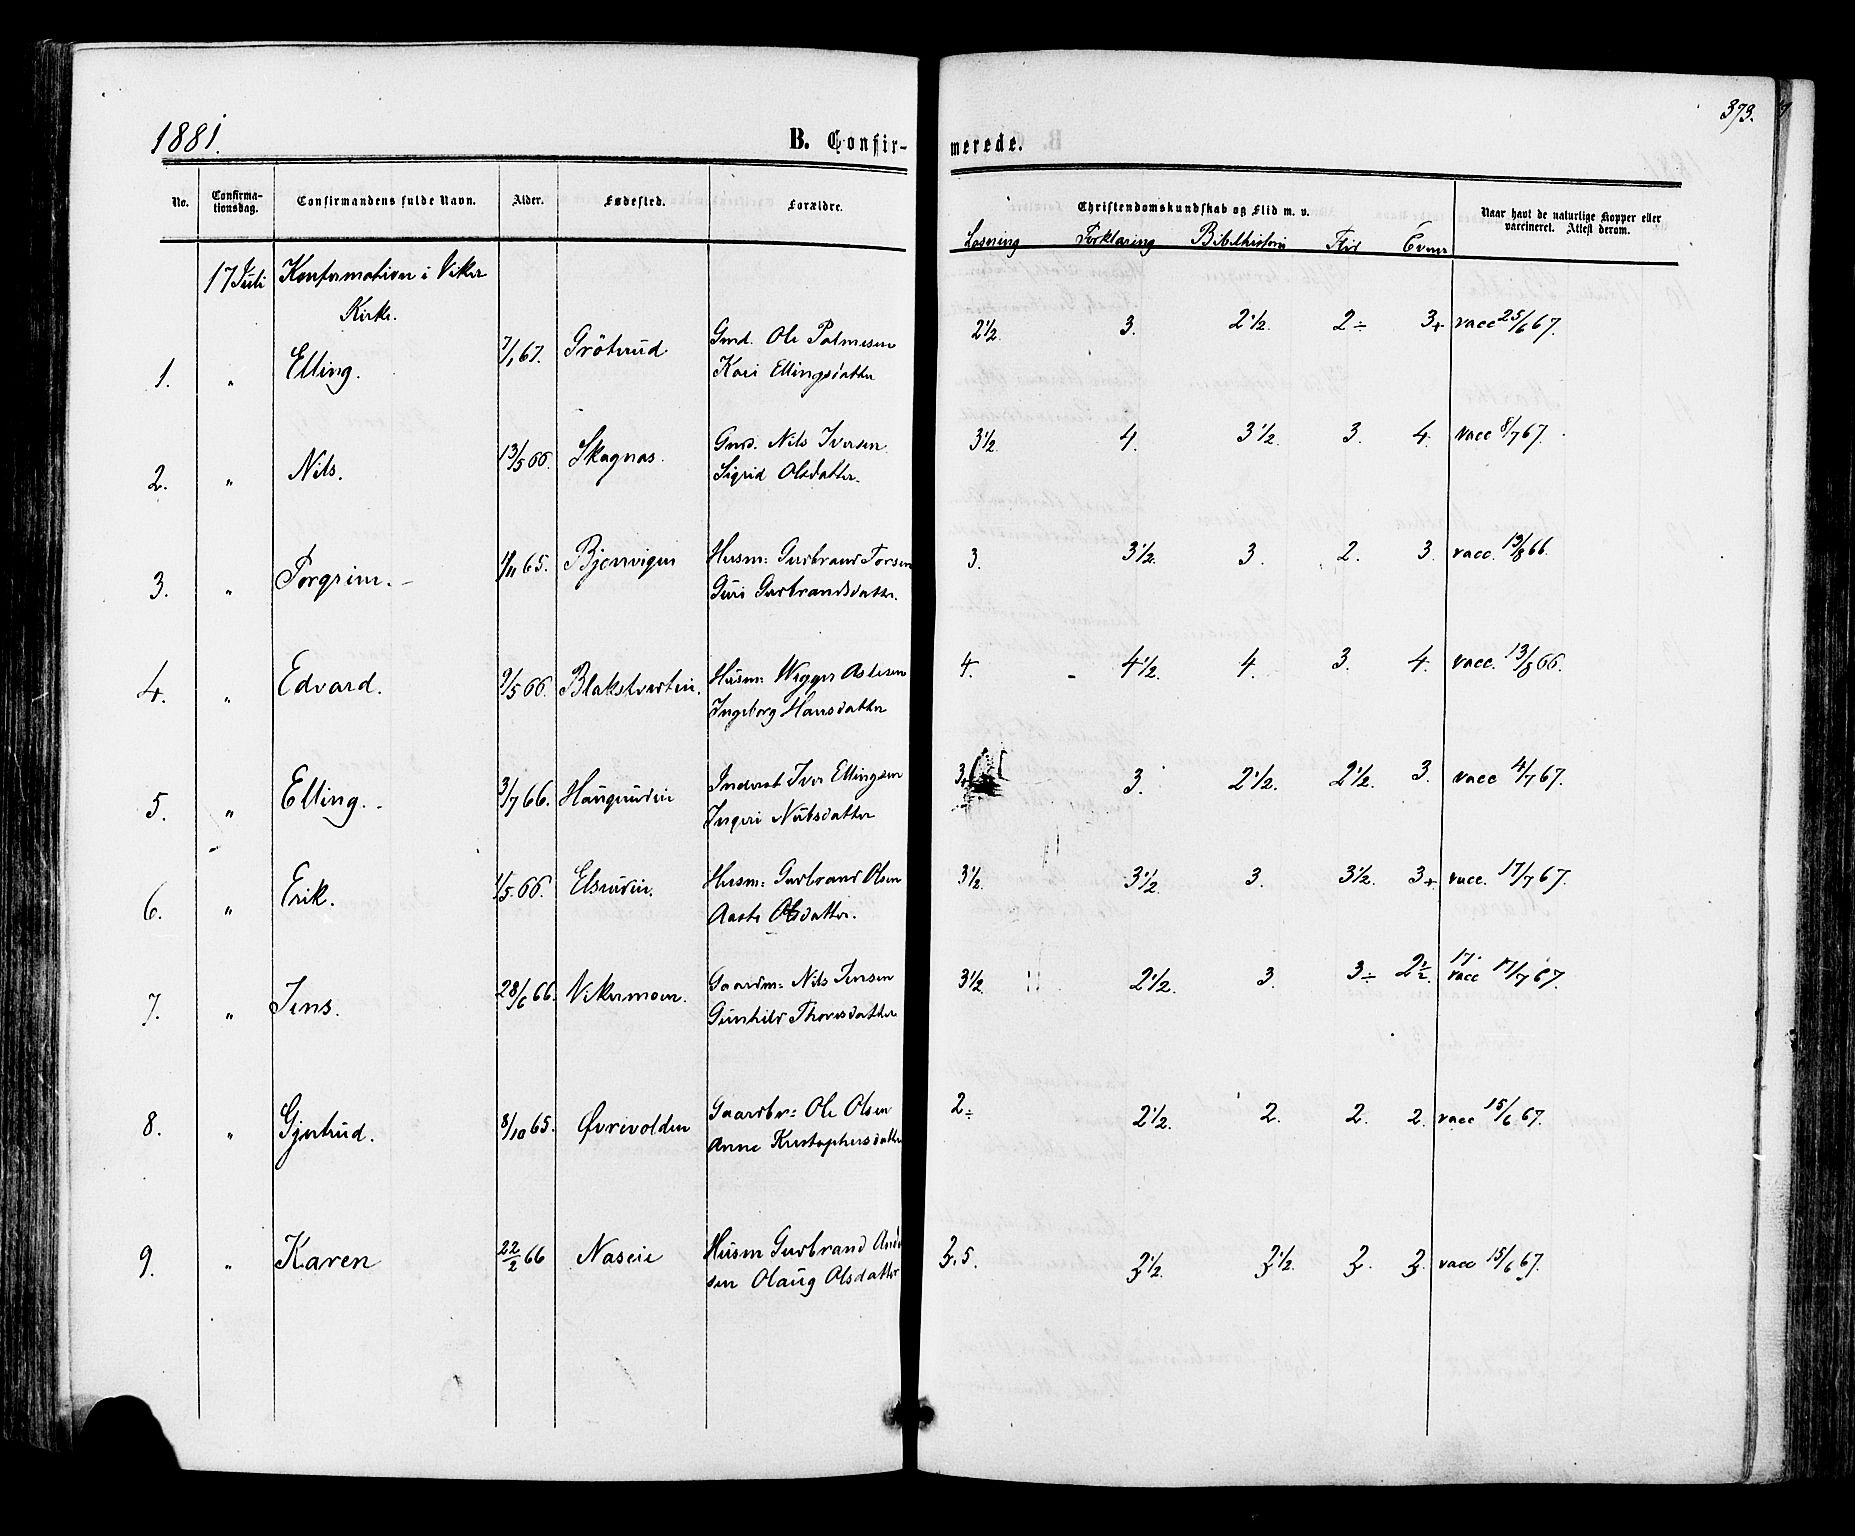 1881.
B. Confir-
merede.
373.
No.
Confirma-
tionsdag.
Confirmandens fulde Navn.
Alder.
Fødested.
Forældre.
Christendomskundskab og Flid m. v.
Læsning Forklaring Bibelhistorie Flid Evner
Naar havt de naturlige Kopper eller
vaccineret. Attest derom.
17 Juli Konfirmation i Viker
Kirke.
1. " Elling. 7/1 67. Grøterud Gmd. Ole Palmesen
Kari Ellingsdatter
2 1/2. 3. 2 1/2. 2÷ 3+ vacc 25/6 67.
2. " Nils. 13/5 66. Skagnæs. Gmd. Nils Iversen
Sigrid Olsdatter.
3 1/2 4. 3 1/2. 3. 4. vacc 8/7 67.
3. " Torgrim. 1/11 65. Bjonvigen Husm: Gudbrand Torsen
Guri Gudbrandsdatter.
3. 3 1/2. 3. 2. 3. vacc. 13/8 66.
4. " Edvard. 9/5 66. Husm:
Ingeborg Hansdatter
4. 4 1/2. 4. 3. 4. vacc. 13/8 66.
5. " Elling. 3/7 66. Haugerudeie Inderst Iver Ellingsen
Ingeri Nubsdatter
3+ 3. 2 1/2. 2 1/2. 3. vacc 4/7 67.
6. " Erik. 1/5 66. Elsrudeie. Husm: Gudbrand Olsen
Aaste Olsdatter.
3 1/2. 3 1/2. 3. 3 1/2. 3+ vacc. 17/7 67.
7. " Jens. 28/6 66. Vikermoen. Gaardm: Nils Jensen
Gunhild Thoresdatter
3 1/2. 2 1/2. 3. 3÷ 2 1/2. 17.
vacc 17/7 67.
8. " Gjertrud. 8/10 65. Øvrevolden Gaardbr: Ole Olsen
Anne Kristophersdatter
2÷ 2 1/2. 2. 2. 2. vacc 15/6 67.
9. " Karen 22/2 66 Næseie Husm Gudbrand
sen Olaug Olsdatter
2,5. 2 1/2. 2 1/2. 2. 2. vacc 15/6 67.